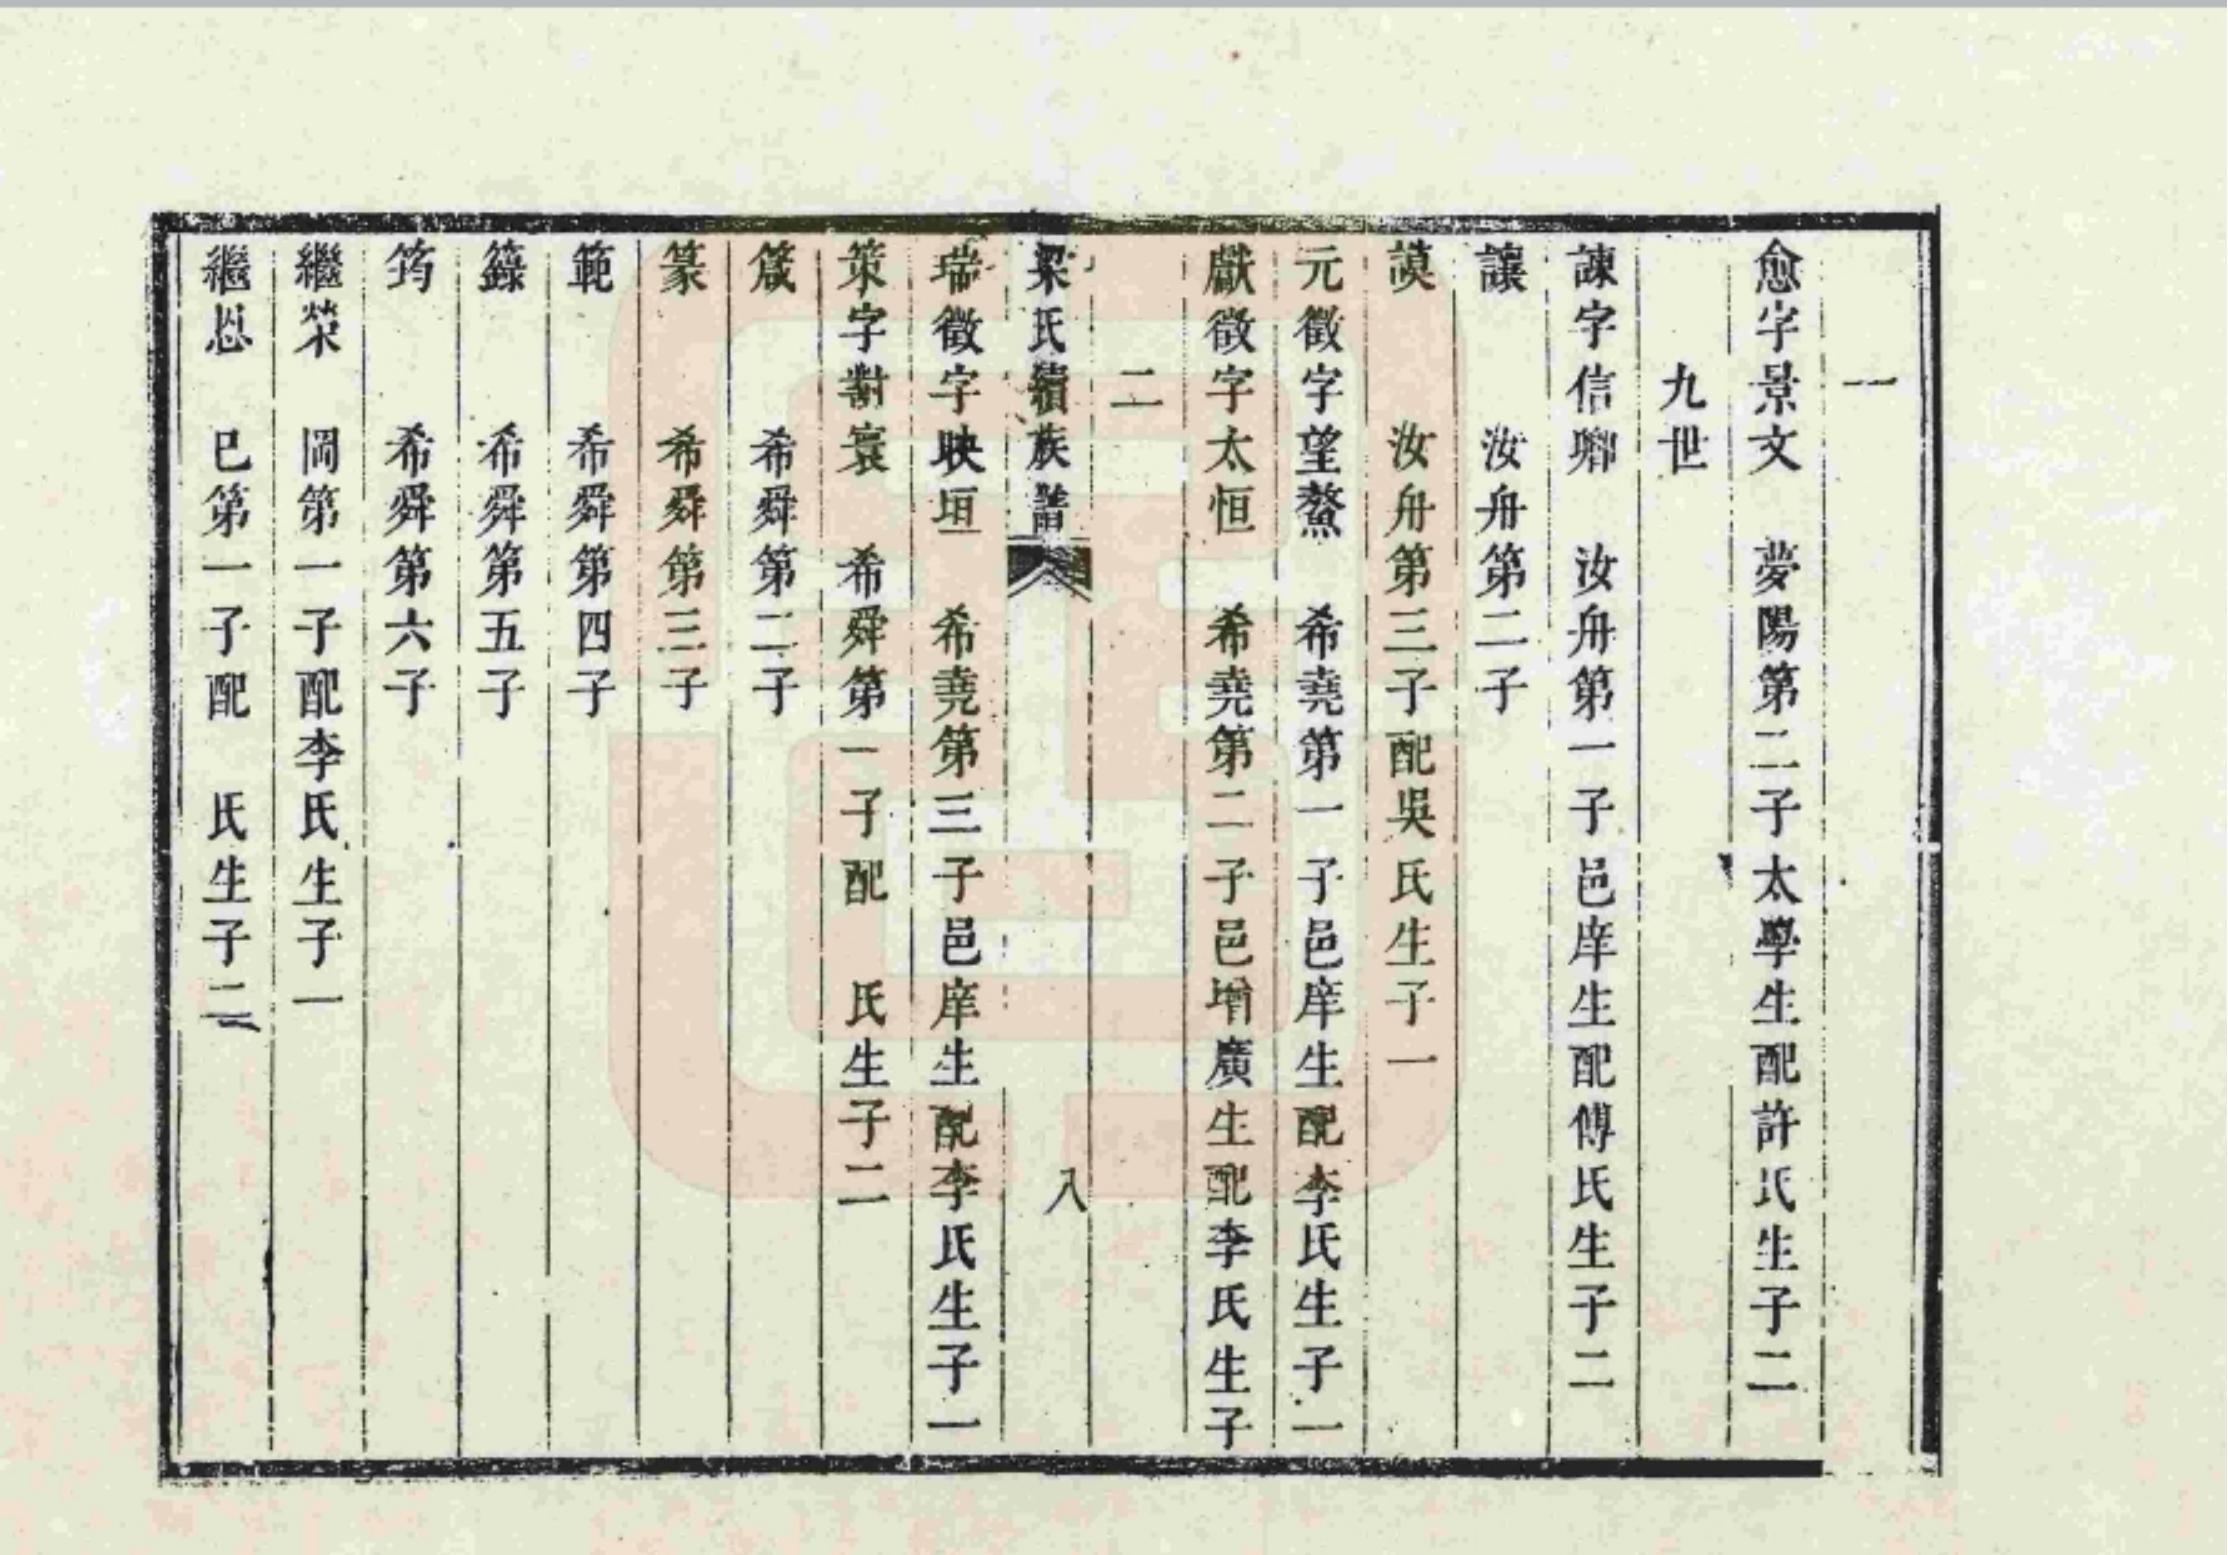 一
愈字景文　夢陽第二子太學生配許氏生子二
九世
諫字信卿　汝舟第一子邑庠生配傅氏生子二
讓　汝舟第二子
謨　汝舟第三子配吳氏生子一
元徵字望鰲　希堯第一子邑庠生配李氏生子一
獻徵字太恒　希堯第二子邑增廣生配李氏生子
二
梁氏續族譜　八
瑞徵字映垣　希堯第三子邑庠生配李氏生子一
策字對寰　希舜第一子配　氏生子二
箴　希舜第二子
篆　希舜第三子
範　希舜第四子
籙　希舜第五子
筠　希舜第六子
繼荣　岡第一子配李氏生子一
繼恩　巳第一子配　氏生子二